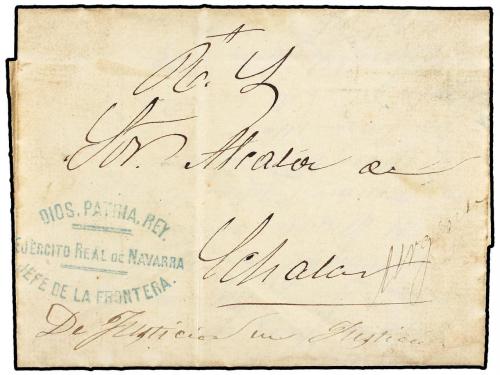 Rl. S
Sor. Alcalde de
DIOS, PATRIA, REY.
EJÉRCITO REAL DE NAVARRA
JEFE DE LA FRONTERA.
Echalar
De Justicia en Justicia